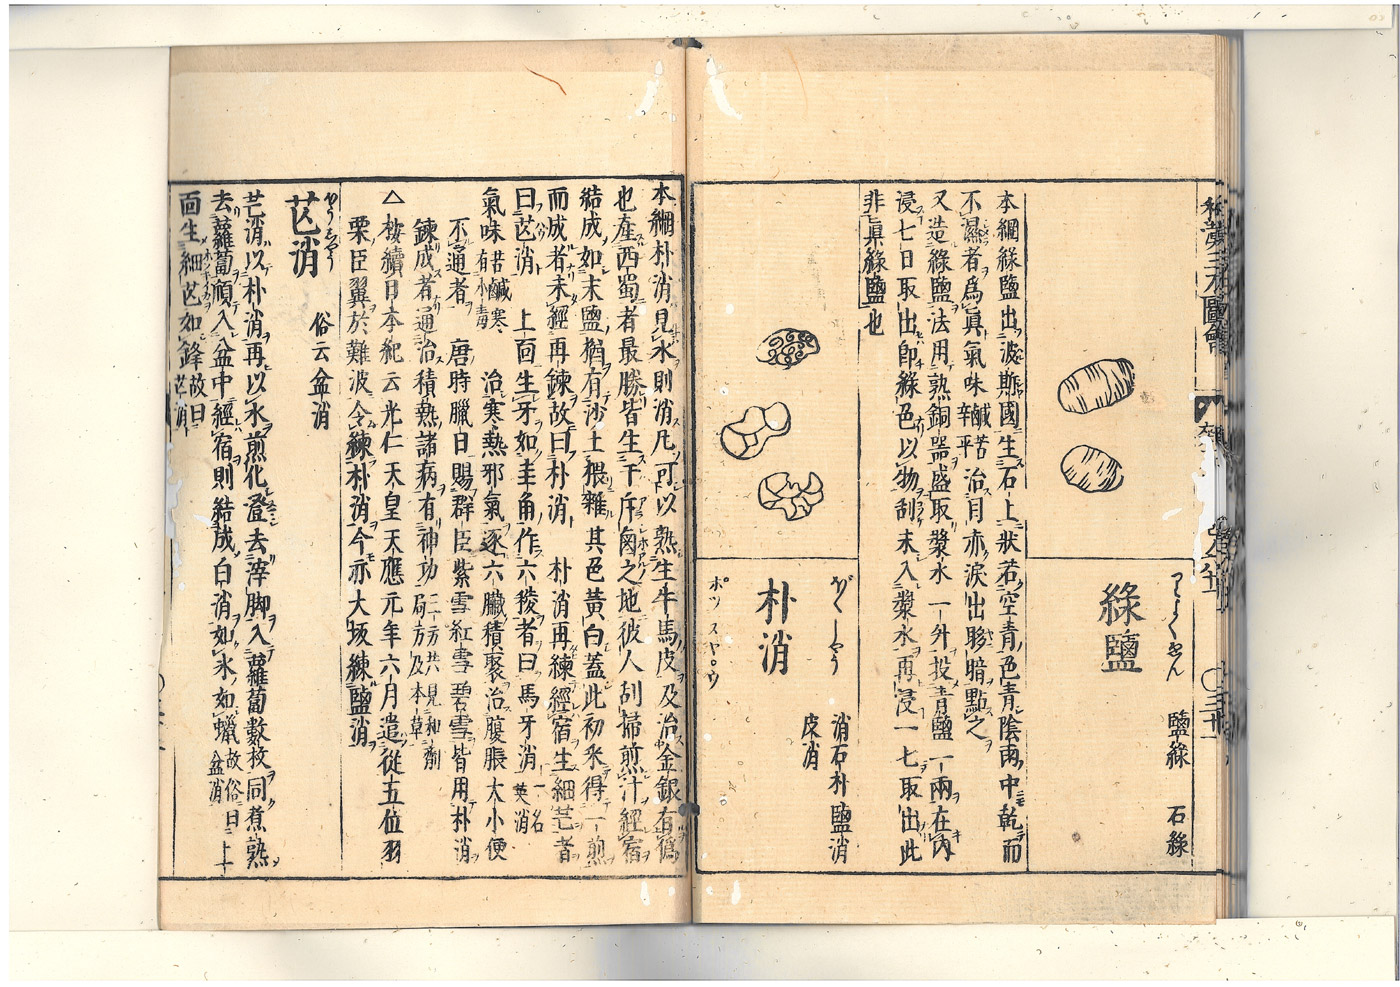 和漢三才圖會
りよくゑん
綠鹽
鹽綠 石綠
本綱綠鹽出波斯國生石上狀若空靑色靑陰雨中乾而
不濕者爲眞氣味鹹苦辛平治目赤淚出眵暗點之
又造綠鹽法用熟銅器盛取漿水一外投靑鹽一兩在內
浸七日取出卽綠色以物刮末入漿水再浸一七取出此
非眞綠鹽也
ぼくしやう
朴消
ポツスヤ゜ウ
消石朴 鹽消
皮消
本綱朴消見水則消凡可以熟生牛馬皮及治金銀有僞
也產西蜀者最勝皆生于斥鹵之地彼人刮掃煎汁經宿
結成如末鹽猶有沙土猥雜其色黃白蓋此初采得一煎
而成者未經再鍊故曰朴消 朴消再煉經宿生細芒者
曰芒消 上面生牙如圭角作六稜者曰馬牙消一名英消
氣味苦鹹寒有小毒 治寒熱邪氣逐六臟積聚治腹脹大小便
不通者 唐時臘日賜群臣紫雪紅雪碧雪皆用朴消
鍊成者通治積熱諸病有神功二方共見和劑局方及本草
△按續日本紀云光仁天皇天應元年六月遣從五位羽
栗臣翼於難波令練朴消今亦大坂練鹽消
ばうしやう
芒消
俗云盆消
芒消以朴消再以水煎化澄去滓脚入蘿蔔數枚同煮熟
去蘿蔔傾入盆中經宿則結成白消如氷如蠟故俗曰盆消上
面生細芒如鋒故曰芒消